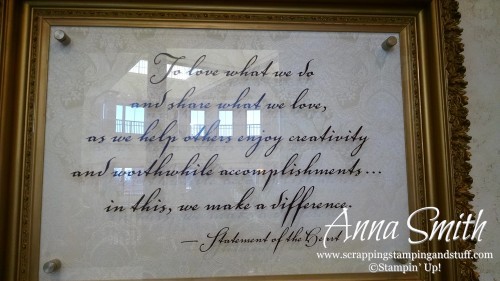 To love what we do
and share what we love,
as we help others enjoy creativity
and worthwhile accomplishments...
in this, we make a difference.
— Statement of the Heart
Anna Smith
www.scrappingstampingandstuff.com
©Stampin' Up!